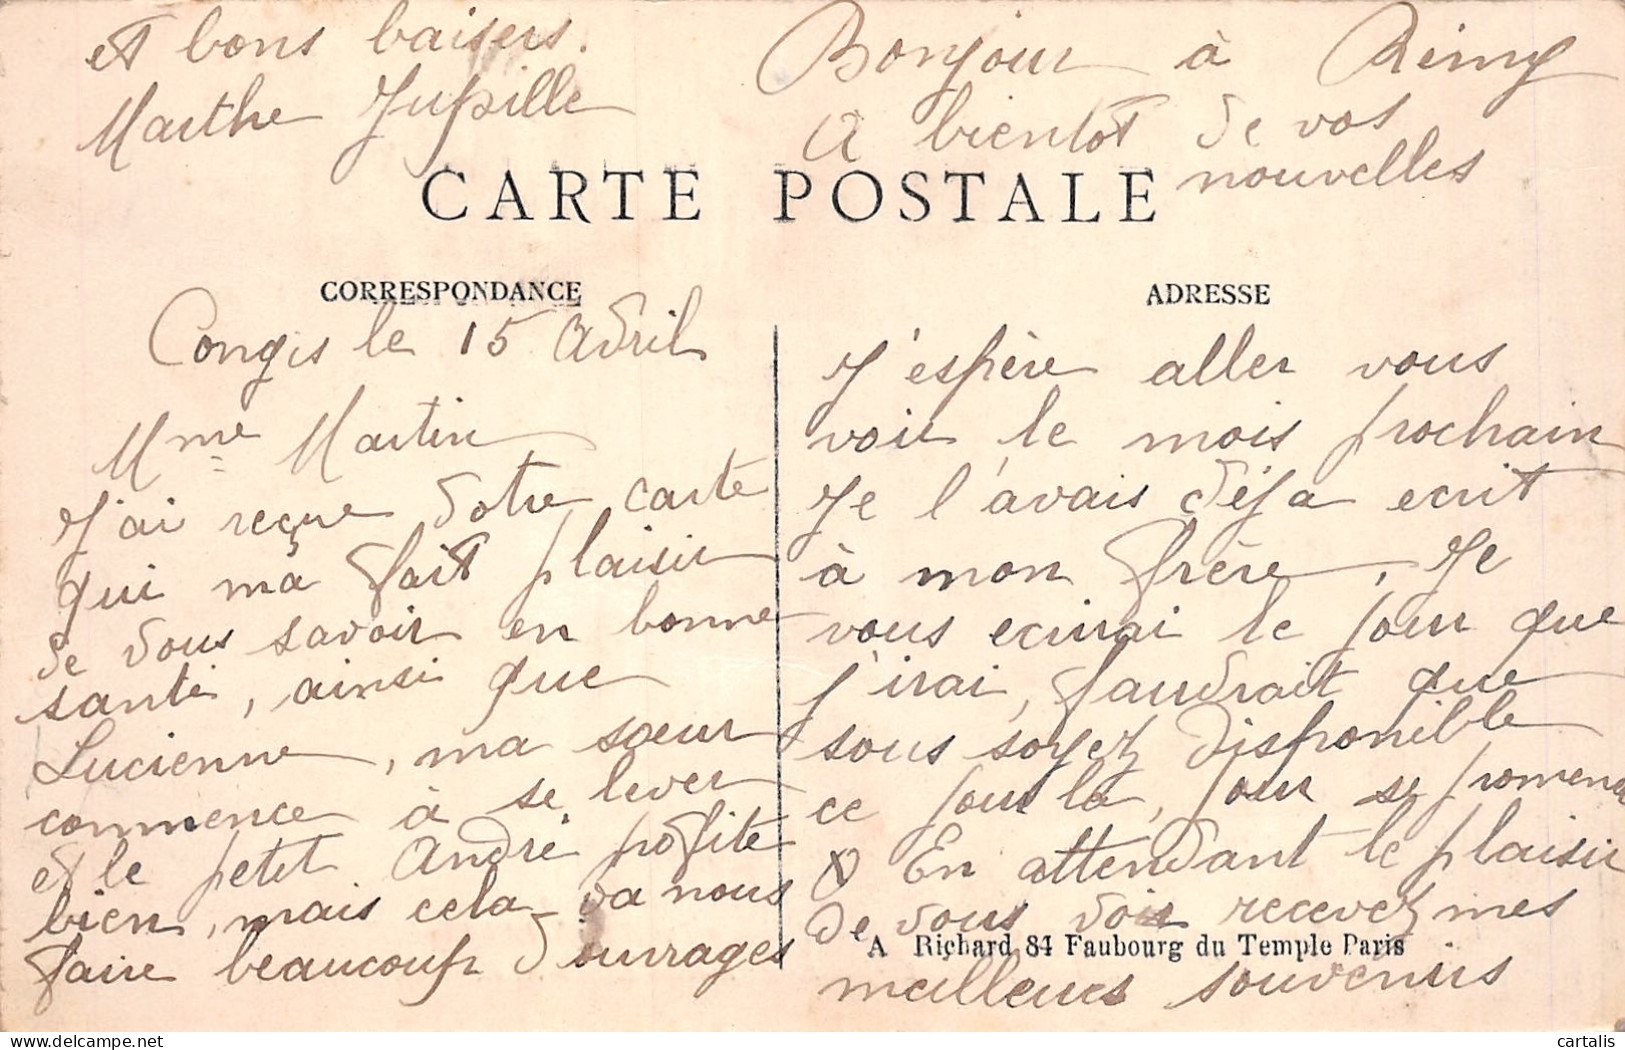 CARTE POSTALE
CORRESPONDANCE
Congis le 15 Avril
Mme Martin
J'ai reçue votre carte
qui ma fait plaisir
de vous savoir en bonne
santé, ainsi que
Lucienne, ma sœur
commence à se lever
et le petit André profite
bien, mais cela va nous
faire beaucoup d'ouvrages
ADRESSE
J'espère aller vous
voir le mois prochain
Je l'avais déja ecrit
à mon frère, Je
vous ecrirai le jour que
j'irai, faudrait que
vous soyez disponible
ce jour la, pour se promener
En attendant le plaisir
de vous voir recevez mes
A Richard 84 Faubourg du Temple Paris
meilleurs souvenirs
et bons baisers.
Marthe Jupille
Bonjour à Rémy
A bientot de vos
nouvelles
delcampe.net
cartalis